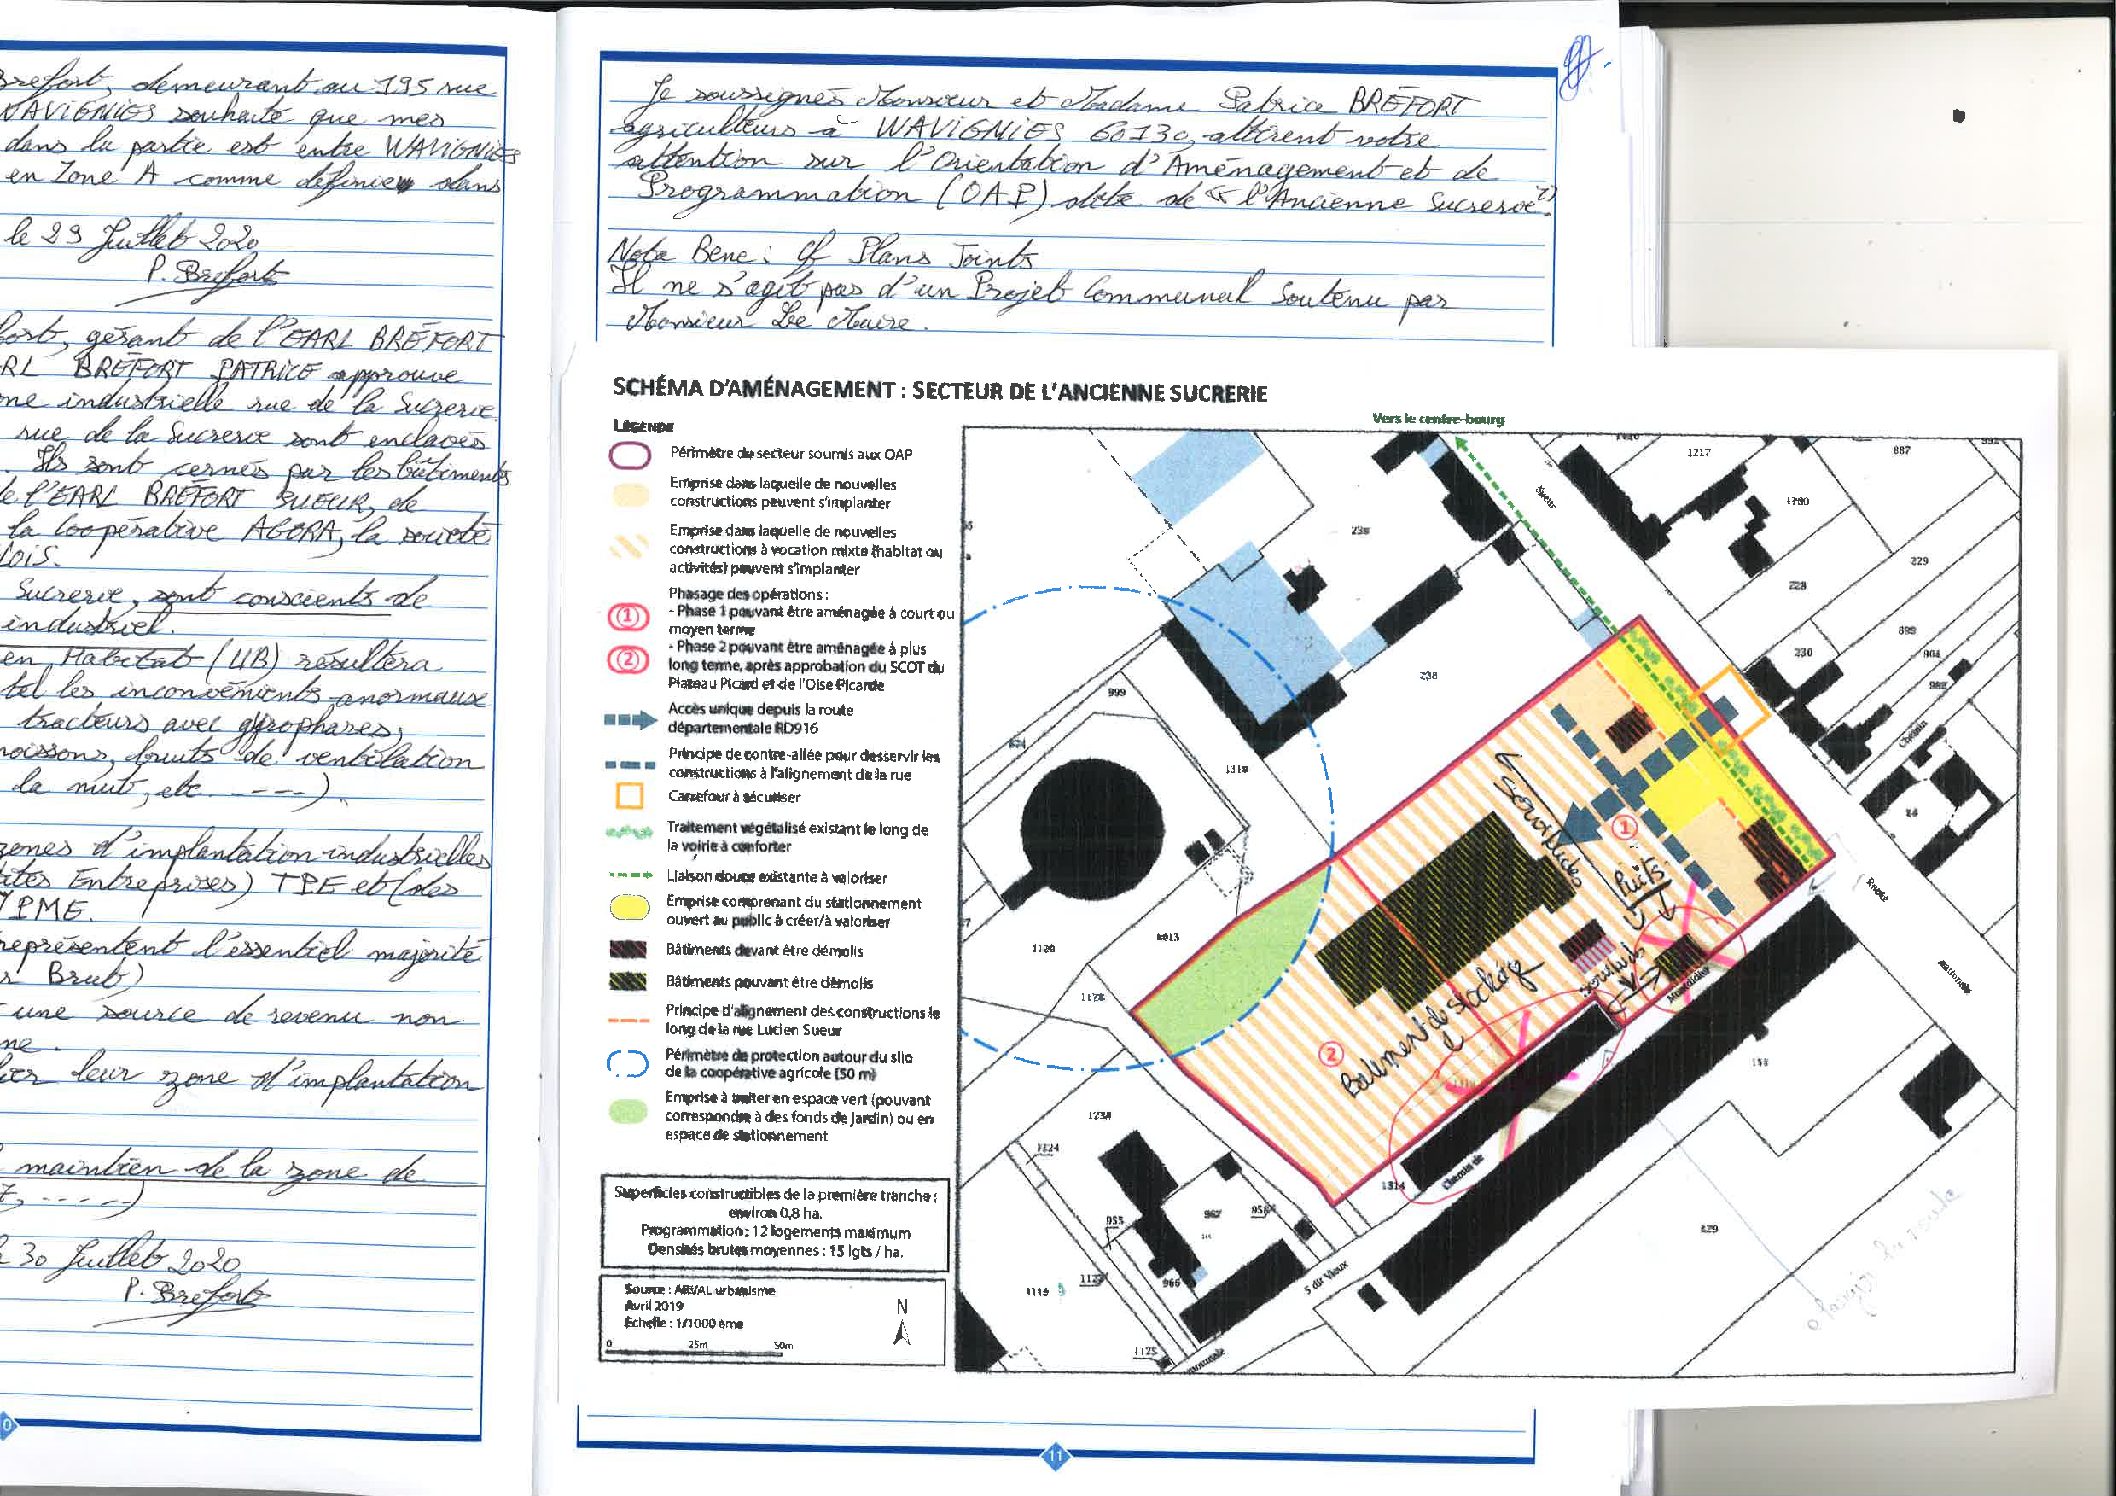 Brefort, demeurant au 195 rue
WAVIGNIES souhaite que mes
dans la partie est entre WAVIGNIES
en Zone A comme définie dans
le 29 Juillet 2020
P. Brefort
fort, gérant de l'EARL BRÉFORT
RL BRÉFORT PATRICE approuve
one industrielle rue de la Sucrerie.
rue de la Sucrerie sont enclavés
. Ils sont cernés par les bâtiments
de l'EARL BRÉFORT SUEUR, de
la coopérative AGORA, la société
lois.
Sucrerie, sont conscients de
industriel.
en Habitat (UB) résultera
tel les inconvénients anormaux
tracteurs avec gyrophares,
moissons, bruits de ventilation
la nuit, etc ----).
zones d'implantation industrielles
ites Entreprises) TPE et (des
PME.
représentent l'essentiel majorité
r Brut)
une source de revenu non
ne.
ier leur zone d'implantation
maintien de la zone de
, -----)
30 Juillet 2020
P. Brefort
Je soussignés Monsieur et Madame Patrice BRÉFORT
agriculteurs à WAVIGNIES 60130, attirent votre
attention sur l'Orientation d'Aménagement et de
Programmation (OAP) dite de « l'Ancienne Sucrerie ».
Nota Bene : cf Plans Joints
Il ne s'agit pas d'un Projet Communal soutenu par
Monsieur Le Maire.
SCHÉMA D'AMÉNAGEMENT : SECTEUR DE L'ANCIENNE SUCRERIE
LÉGENDE
Périmètre du secteur soumis aux OAP
Emprise dans laquelle de nouvelles
constructions peuvent s'implanter
Emprise dans laquelle de nouvelles
constructions à vocation mixte (habitat ou
activités) peuvent s'implanter
Phasage des opérations :
(1) - Phase 1 pouvant être aménagée à court ou
moyen terme
(2) - Phase 2 pouvant être aménagée à plus
long terme, après approbation du SCOT du
Plateau Picard et de l'Oise Picarde
Accès unique depuis la route
départementale RD916
Principe de contre-allée pour desservir les
constructions à l'alignement de la rue
Carrefour à sécuriser
Traitement végétalisé existant le long de
la voirie à conforter
Liaison douce existante à valoriser
Emprise comprenant du stationnement
ouvert au public à créer/à valoriser
Bâtiments devant être démolis
Bâtiments pouvant être démolis
Principe d'alignement des constructions le
long de la rue Lucien Sueur
Périmètre de protection autour du silo
de la coopérative agricole (50 m)
Emprise à traiter en espace vert (pouvant
correspondre à des fonds de jardin) ou en
espace de stationnement
Superficies constructibles de la première tranche :
environ 0,8 ha.
Programmation : 12 logements maximum
Densités brutes moyennes : 15 lgts / ha.
Source : ARVAL urbanisme
Avril 2019
Echelle : 1/1000 ème
N
0 25m 50m
Vers le centre-bourg
1217
887
1780
Sueur
239
229
228
230
904
982
238
999
1318
Chemin
Route
Nationale
1
Puits
1120
1128
2
Bâtiment de stockage
158
1234
1224
1314
Chemin de
953
967
956
966
1119
1125
S dit Vieux
829
élargir la route
11